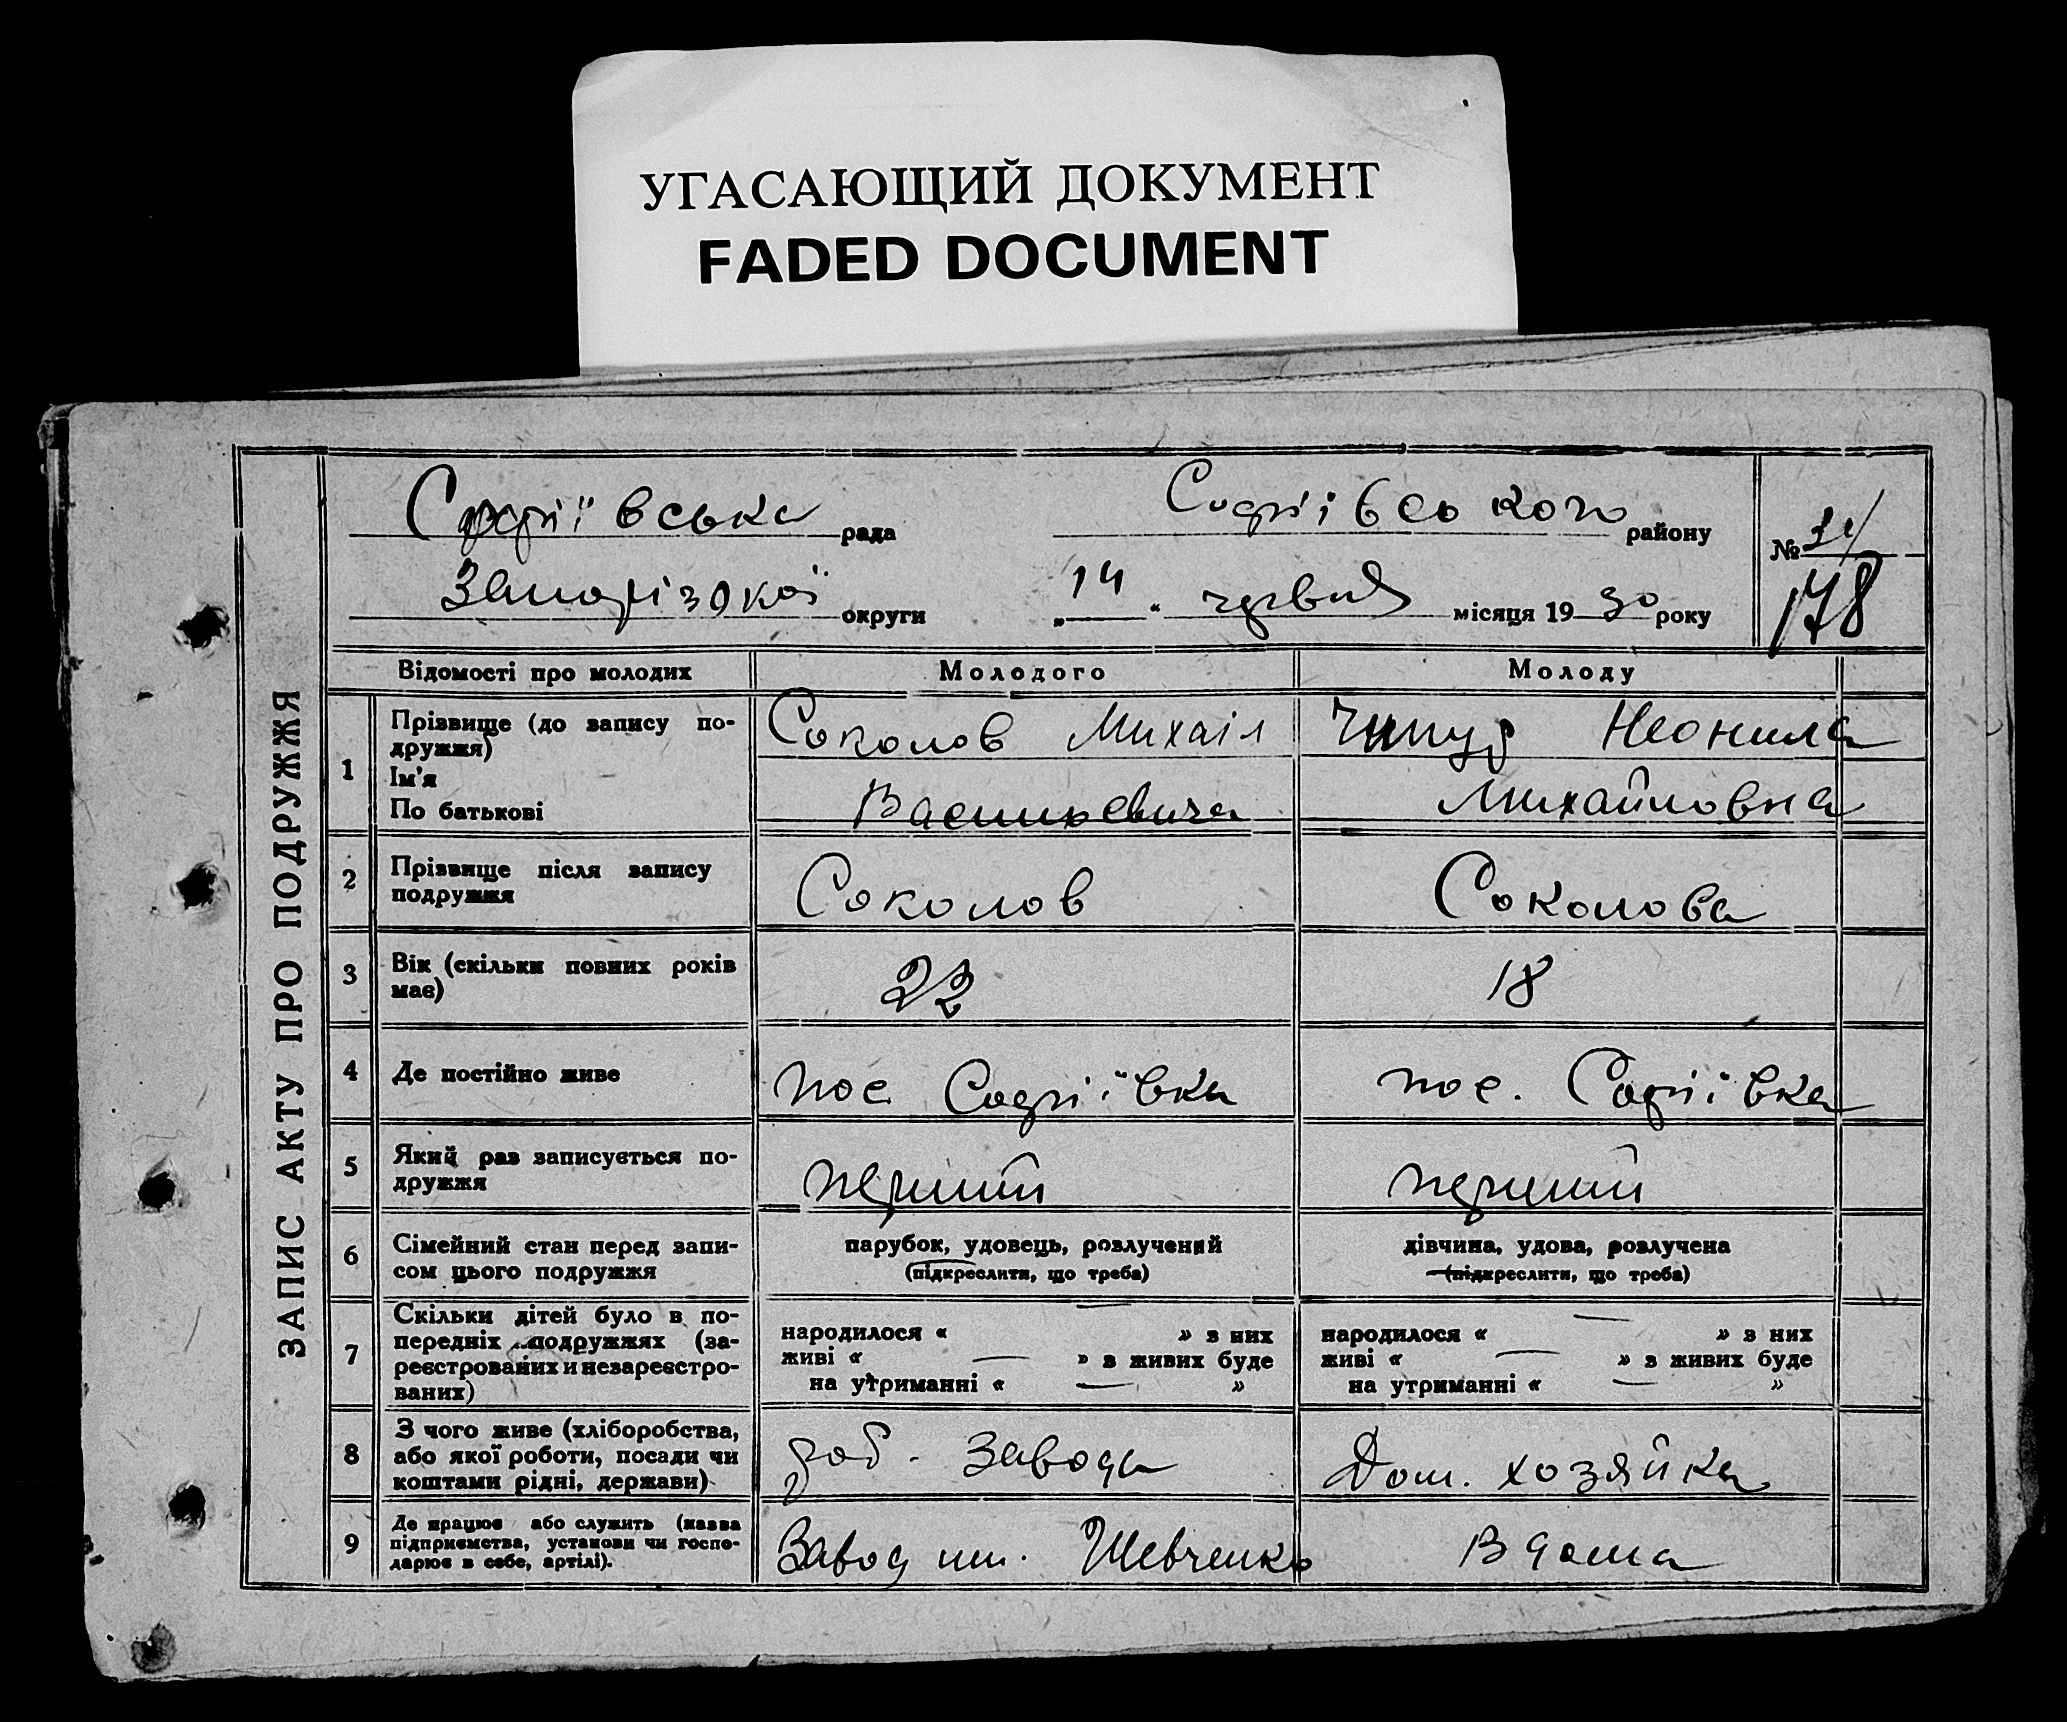 УГАСАЮЩИЙ ДОКУМЕНТ
FADED DOCUMENT
ЗАПИС АКТУ ПРО ПОДРУЖЖЯ
Софіївська рада Софіївського району
№ 178
Запорізької округи „14“ червня місяця 1930 року
Відомості про молодих Молодого Молоду
1 Прізвище (до запису по-
дружжя)
Ім'я
По батькові
Соколов Михаіл
Васильевича
Неонила
Михайловна
2 Прізвище після запису
подружжя
Соколов Соколова
3 Вік (скільки повних років
має)
22 18
4 Де постійно живе пос Софіївка пос. Софіївка
5 Який раз записується по-
дружжя
перший перший
6 Сімейний стан перед запи-
сом цього подружжя
парубок, удовець, розлучений
(підкреслити, що треба)
дівчина, удова, розлучена
(підкреслити, що треба)
7 Скільки дітей було в по-
передніх подружжях (за-
реєстрованих и незареєстро-
ваних)
народилося « — » з них
живі « — » з живих буде
на утриманні « — »
народилося « — » з них
живі « — » з живих буде
на утриманні « — »
8 З чого живе (хліборобства,
або якої роботи, посади чи
коштами рідні, держави)
роб. завода Дом. хозяйка
9 Де працює або служить (назва
підприємства, установи чи госпо-
дарює в себе, артілі).
Завод им. Шевченко Вдома